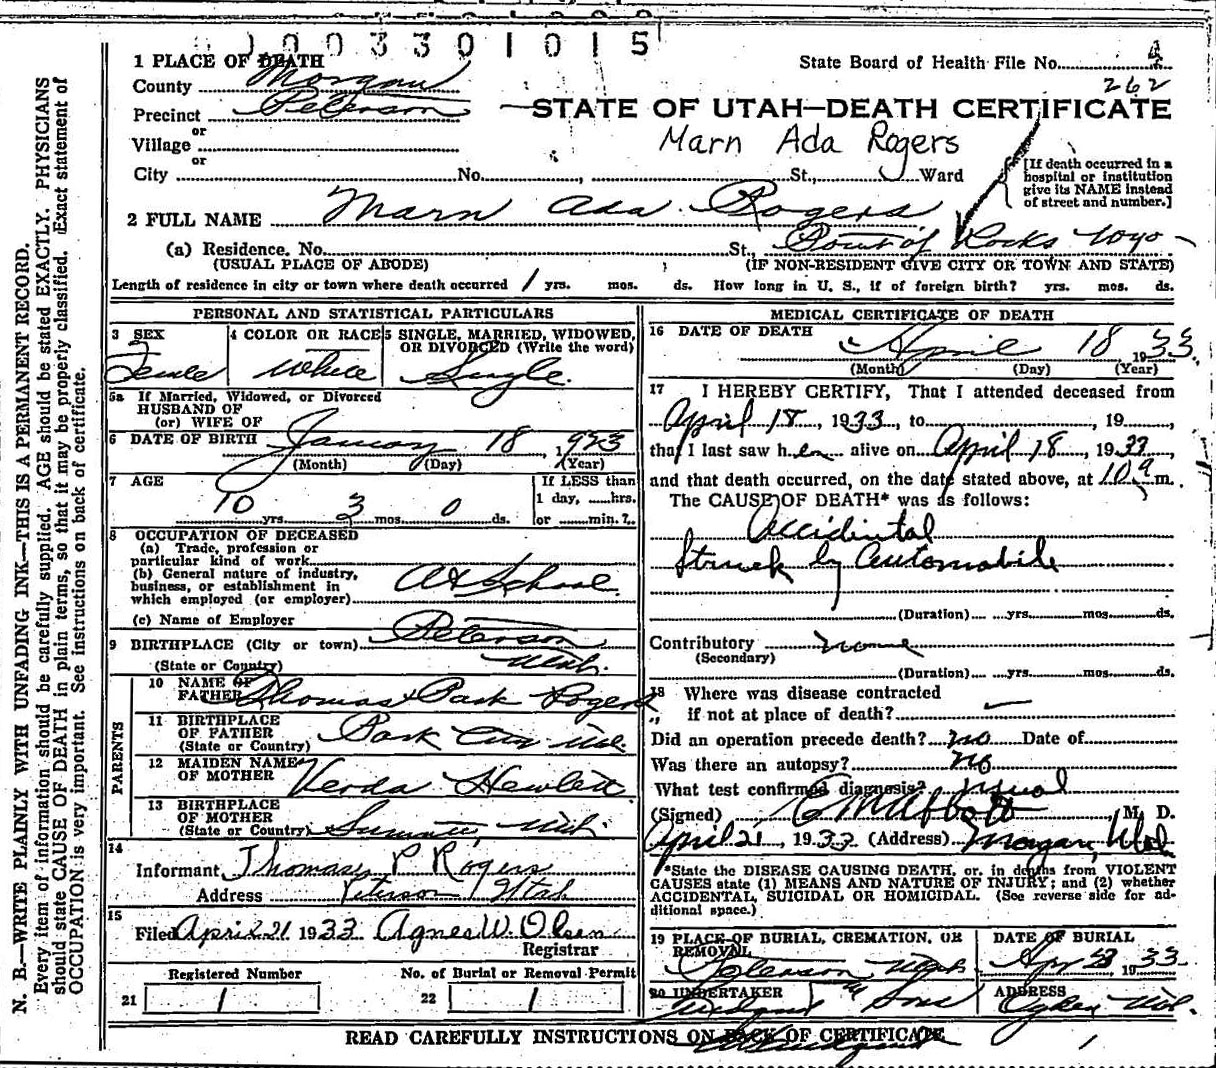 0 0 0 3 3 0 1 0 1 5
1 PLACE OF DEATH
State Board of Health File No. 4
262
County Morgan
Precinct Peterson
or
Village
or
City No. , St., Ward
STATE OF UTAH—DEATH CERTIFICATE
Marn Ada Rogers
[If death occurred in a
hospital or institution
give its NAME instead
of street and number.]
2 FULL NAME Marn Ada Rogers
(a) Residence. No. St., Point of Rocks Wyo
(USUAL PLACE OF ABODE) (IF NON-RESIDENT GIVE CITY OR TOWN AND STATE)
Length of residence in city or town where death occurred 1 yrs. mos. ds. How long in U. S., if of foreign birth? yrs. mos. ds.
PERSONAL AND STATISTICAL PARTICULARS
3 SEX 4 COLOR OR RACE 5 SINGLE, MARRIED, WIDOWED,
OR DIVORCED (Write the word)
White Single.
5a If Married, Widowed, or Divorced
HUSBAND OF
(or) WIFE OF
6 DATE OF BIRTH January 18, 1923
(Month) (Day) (Year)
7 AGE If LESS than
1 day, hrs.
10 yrs. 3 mos. 0 ds. or min.?
8 OCCUPATION OF DECEASED
(a) Trade, profession or
particular kind of work
(b) General nature of industry,
business, or establishment in
which employed (or employer) At School
(c) Name of Employer
9 BIRTHPLACE (City or town) Peterson
(State or Country) Utah.
PARENTS
10 NAME OF
FATHER Thomas Park Rogers
11 BIRTHPLACE
OF FATHER
(State or Country) Park City Ut.
12 MAIDEN NAME
OF MOTHER Verda Hewlett
13 BIRTHPLACE
OF MOTHER
(State or Country) Utah.
14
Informant Thomas P Rogers
Address Peterson Utah
15
Filed April 21 1933 Agnes W. Olsen
Registrar
Registered Number No. of Burial or Removal Permit
21 1 22 1
MEDICAL CERTIFICATE OF DEATH
16 DATE OF DEATH April 18 1933.
(Month) (Day) (Year)
17 I HEREBY CERTIFY, That I attended deceased from
April 18, 1933, to , 19 ,
that I last saw her alive on April 18, 1933,
and that death occurred, on the date stated above, at 10 a m.
The CAUSE OF DEATH* was as follows:
Accidental
Struck by Automobile
(Duration) yrs. mos. ds.
Contributory none
(Secondary)
(Duration) yrs. mos. ds.
18 Where was disease contracted
if not at place of death?
Did an operation precede death? no Date of
Was there an autopsy? no
What test confirmed diagnosis?
(Signed) Abbott, M. D.
April 21, 1933 (Address) Morgan, Utah
*State the DISEASE CAUSING DEATH, or, in deaths from VIOLENT
CAUSES state (1) MEANS AND NATURE OF INJURY; and (2) whether
ACCIDENTAL, SUICIDAL OR HOMICIDAL. (See reverse side for ad-
ditional space.)
19 PLACE OF BURIAL, CREMATION, OR
REMOVAL
Peterson Utah
DATE OF BURIAL
Apr 1933.
20 UNDERTAKER Sons
ADDRESS
Ogden Ut.
READ CAREFULLY INSTRUCTIONS ON BACK OF CERTIFICATE
N. B.—WRITE PLAINLY WITH UNFADING INK—THIS IS A PERMANENT RECORD.
Every item of information should be carefully supplied. AGE should be stated EXACTLY. PHYSICIANS
should state CAUSE OF DEATH in plain terms, so that it may be properly classified. Exact statement of
OCCUPATION is very important. See instructions on back of certificate.